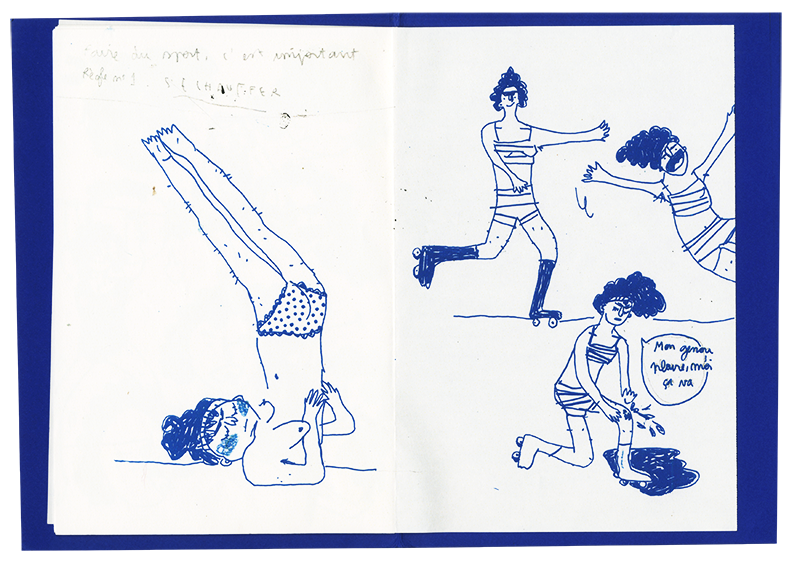 Faire du sport, c'est important
Règle n°1 : S'ÉCHAUFFER
Mon genou
pleure, moi
ça va